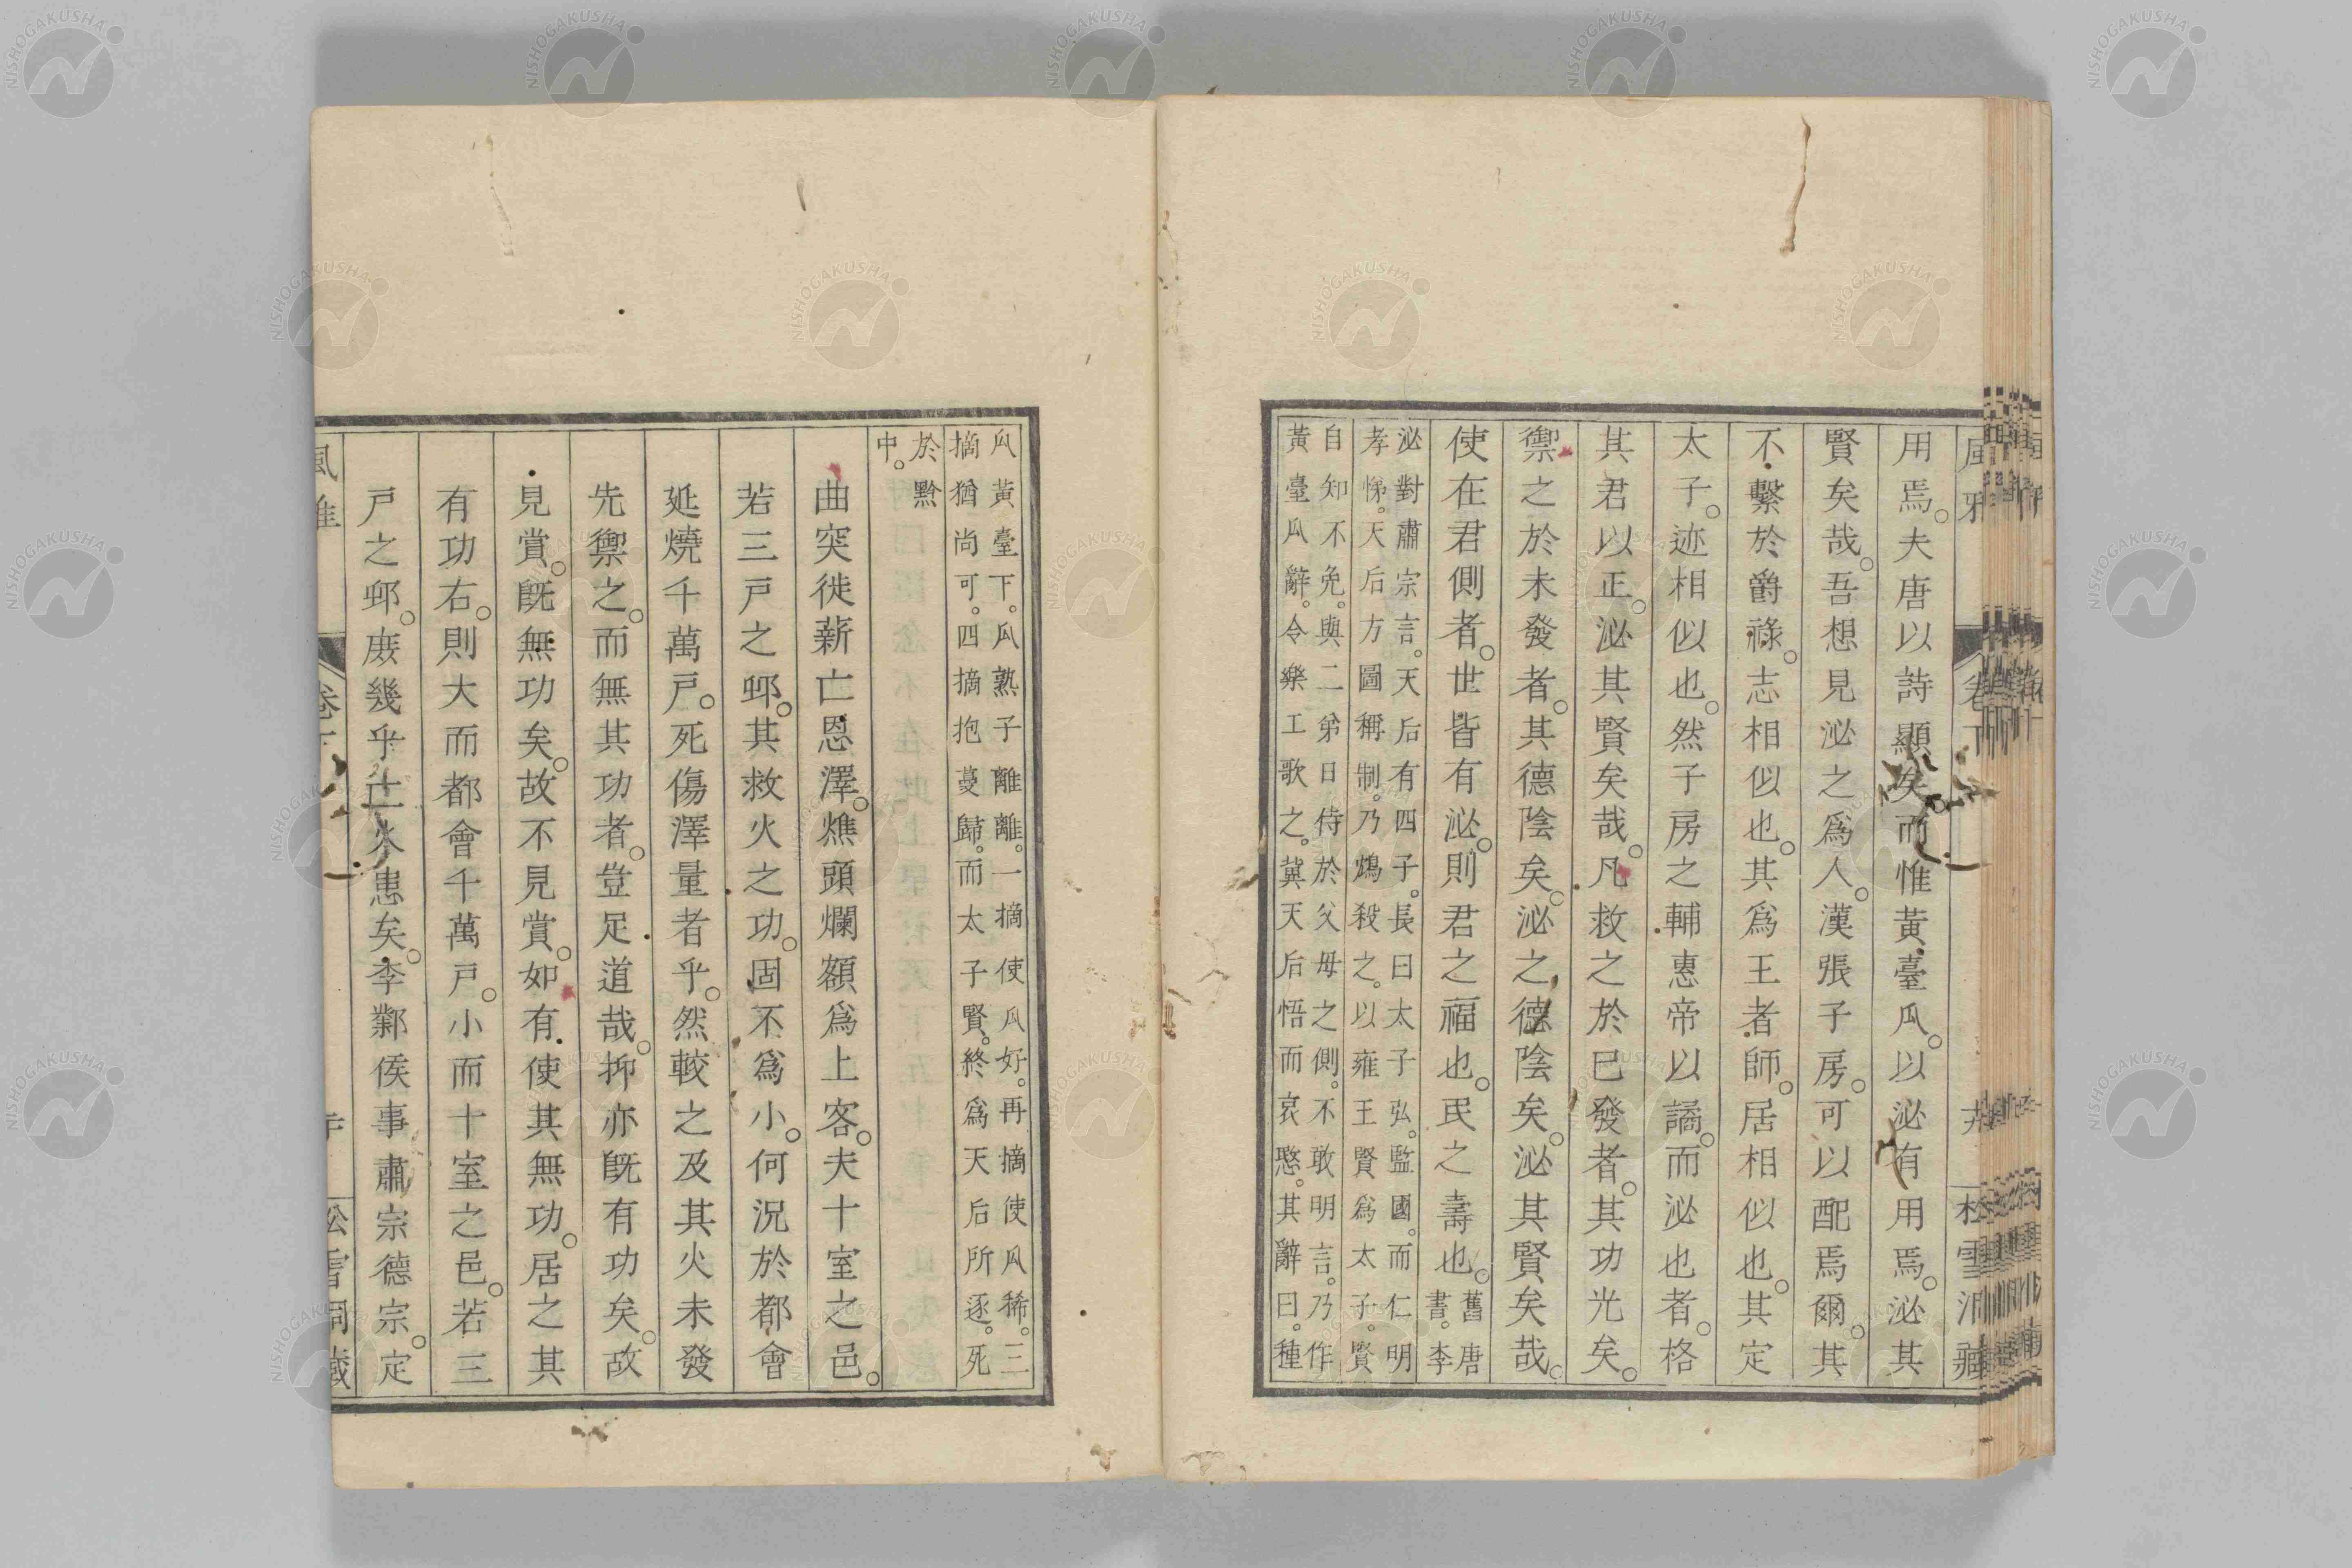 用焉。夫唐以詩顯矣而惟黃臺瓜。以泌有用焉。泌其
賢矣哉。吾想見泌之爲人。漢張子房。可以配焉爾。其
不繫於爵祿。志相似也。其爲王者師。居相似也。其定
太子。迹相似也。然子房之輔惠帝以譎。而泌也者。格
其君以正。泌其賢矣哉。凡救之於已發者。其功光矣。
禦之於未發者。其德陰矣。泌之德陰矣。泌其賢矣哉。
使在君側者。世皆有泌。則君之福也。民之壽也。舊唐
書。李
泌對肅宗言。天后有四子。長曰太子弘。監國。而仁明
孝悌。天后方圖稱制。乃鴆殺之。以雍王賢爲太子。賢
自知不免。與二弟日侍於父母之側。不敢明言。乃作
黃臺瓜辭。令樂工歌之。冀天后悟而哀愍。其辭曰。種
瓜黃臺下。瓜熟子離離。一摘使瓜好。再摘使瓜稀。三
摘猶尚可。四摘抱蔓歸。而太子賢。終爲天后所逐。死
於黔
中。
曲突徙薪亡恩澤。燋頭爛額爲上客。夫十室之邑。
若三戶之鄉。其救火之功。固不爲小。何況於都會
延燒千萬戶。死傷澤量者乎。然較之及其火未發
先禦之。而無其功者。豈足道哉。抑亦旣有功矣。故
見賞。旣無功矣。故不見賞。如有使其無功。居之其
有功右。則大而都會千萬戶。小而十室之邑。若三
戶之鄉。庶幾乎亡火患矣。李鄴侯事肅宗德宗。定
風雅
卷下
松雪洞藏